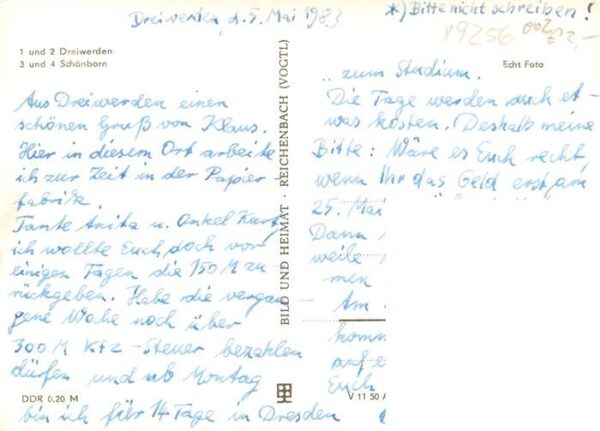 Dreiwerden, d. 5. Mai 1983
*) Bitte nicht schreiben!
1 und 2 Dreiwerden
3 und 4 Schönborn
Echt Foto
Aus Dreiwerden einen
schönen Gruß von Klaus.
Hier in diesem Ort arbeite
ich zur Zeit in der Papier-
fabrik.
Tante Anita u. Onkel Kurt,
ich wollte Euch doch vor
einigen Tagen die 150 M zu-
rückgeben. Habe die vergan-
gene Woche noch über
300 M Kfz-Steuer bezahlen
dürfen und ab Montag
bin ich für 14 Tage in Dresden
DDR 0,20 M
BILD UND HEIMAT · REICHENBACH (VOGTL)
.. zum Studium.
Die Tage werden auch et-
was kosten. Deshalb meine
Bitte: Wäre es Euch recht,
wenn Ihr das Geld erst am
25. Mai
Dann
weile
men
Am
komm
auf
Euch
V 11 50